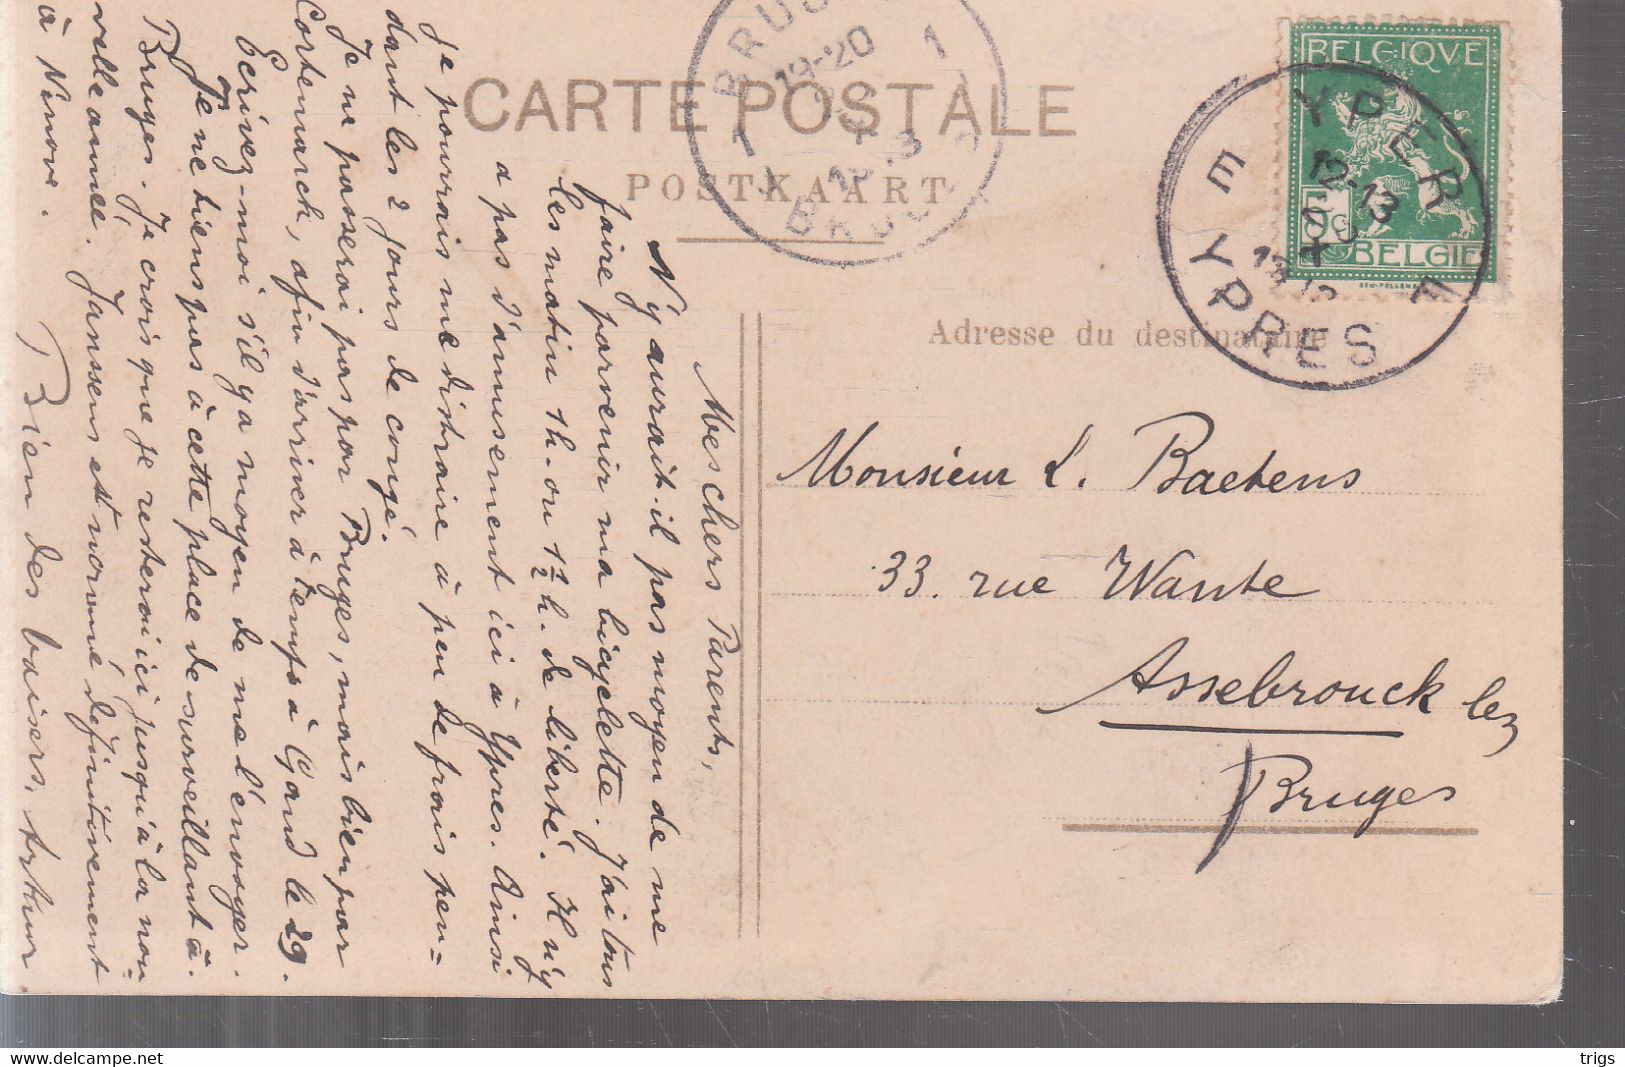 CARTE POSTALE
POSTKAART
BELGIQVE
5
BELGIË
YPER
12-13
E
YPRES
19-20
1
BRUG
Adresse du destinataire
Monsieur L. Baetens
33. rue Wante
Assebrouck lez
Bruges
Mes chers Parents,
N'y aurait-il pas moyen de me
faire parvenir ma bicyclette. J'ai tous
les matin 1h. ou 1½ h. de liberté. Il n'y
a pas d'amusement ici à Ypres. Ainsi
je pourrais me distraire à peu de frais pen=
dant les 2 jours de congé.
Je ne passerai pas par Bruges, mais bien par
Cortemarck, afin d'arriver à temps à Gand le 29.
Ecrivez-moi s'il y a moyen de me l'envoyer.
Je ne tiens pas à cette place de surveillant à
Bruges. Je crois que je resterai ici jusqu'à la nou=
velle année. Janssens est nommé définitivement
à Ninove.
Bien des baisers, Arthur
trigs